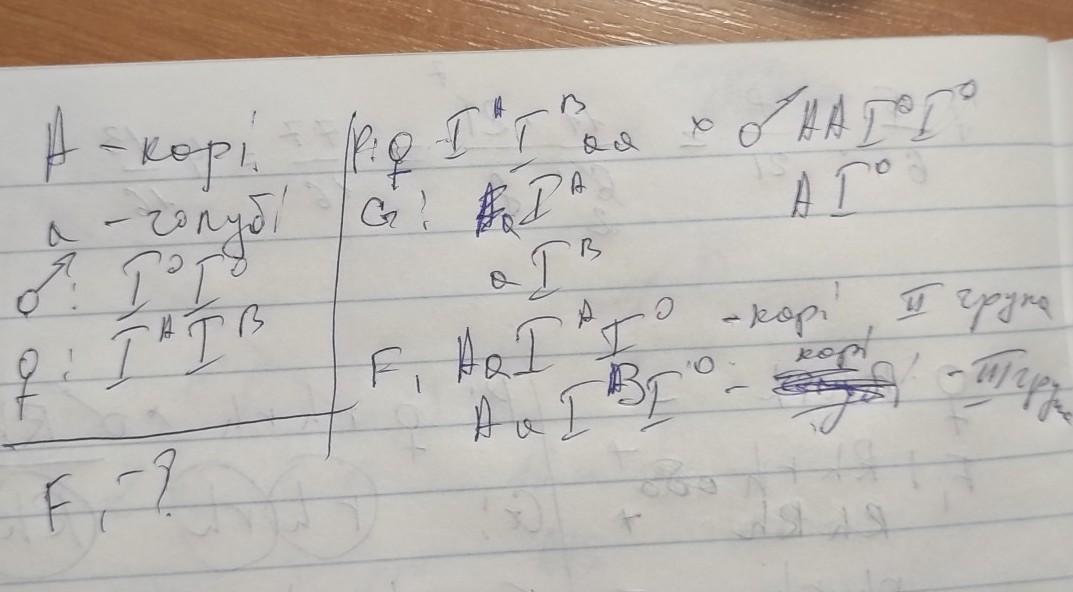 A - карі
a - голубі
♂: I⁰I⁰
♀: IᴬIᴮ
F₁ - ?
P: ♀ IᴬIᴮ aa x ♂ AA I⁰I⁰
G: aIᴬ AI⁰
aIᴮ
F₁ AaIᴬI⁰ - карі II група
AaIᴮI⁰ - карі - III група